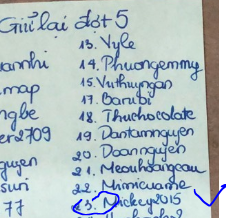 Giữ lại đợt 5
13. Vyle
14. Phuongemmy
15. Vuthuyngan
17. Barubi
18. Thuchocolate
19. Dantamnguyen
20. Doannguyen
21. Meouhoangcau
22. Mimicuame
23. Mickey2015
annhi
map
ngbe
er2709
guyen
suri
77